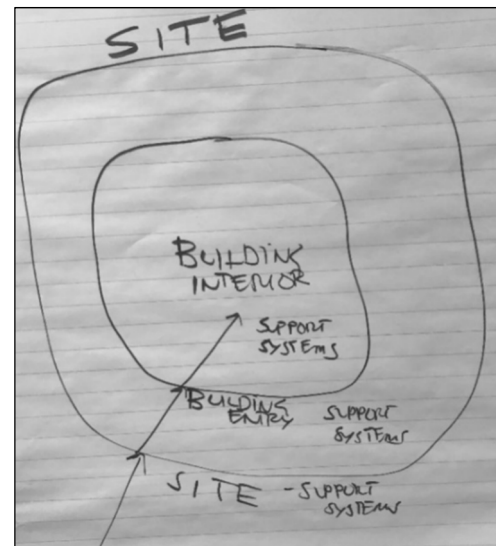 SITE
BUILDING
INTERIOR
SUPPORT
SYSTEMS
BUILDING
ENTRY
SUPPORT
SYSTEMS
SITE - SUPPORT
SYSTEMS